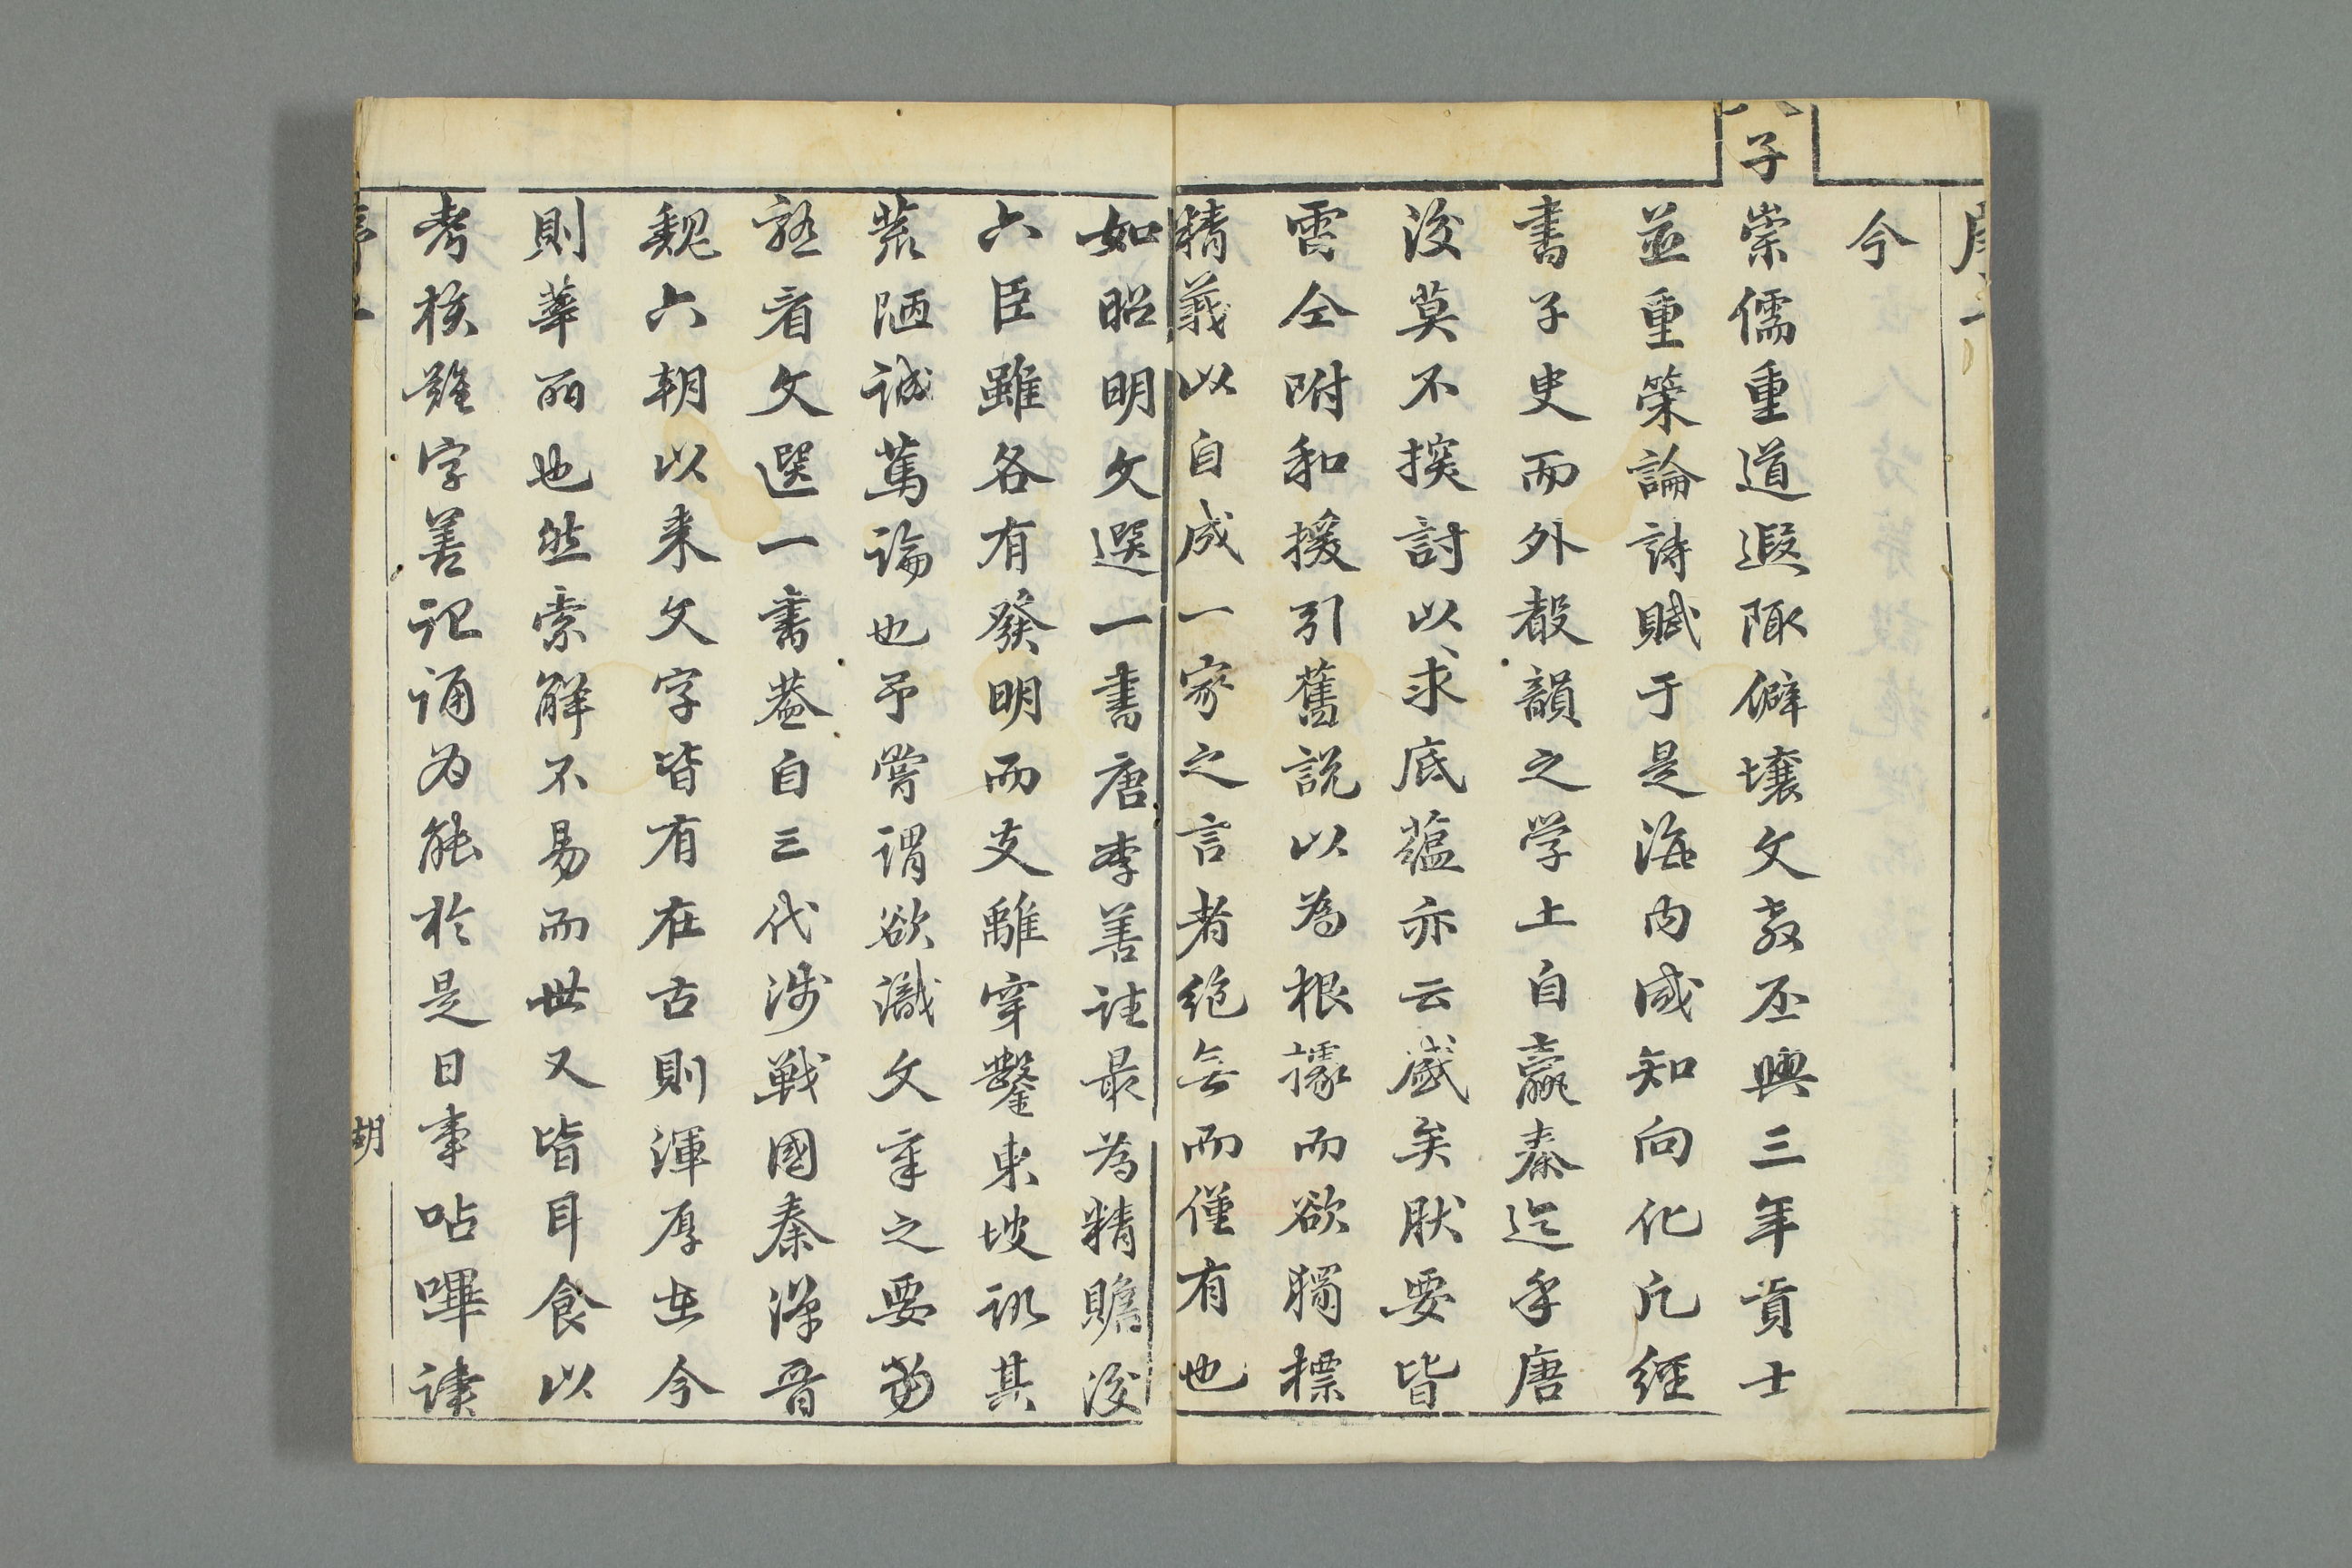 今
子崇儒重道遐陬僻壤文教丕興三年貢士
並重策論詩賦于是海内咸知向化凡經
書子史而外聲韻之学土自嬴秦迄乎唐
後莫不探討以求底蘊亦云盛矣肰要皆
雷仝附和援引舊說以為根據而欲獨標
精義以自成一家之言者絶無而僅有也
如昭明文選一書唐李善註最為精贍後
六臣雖各有發明而支離穿鑿東坡詆其
荒陋誠篤論也予嘗謂欲識文章之要當
熟看文選一書葢自三代涉戰國秦漢晉
魏六朝以来文字皆有在古則渾厚在今
則華丽也然索解不易而世又皆耳食以
考核難字善记诵为能於是日事呫嗶读
胡